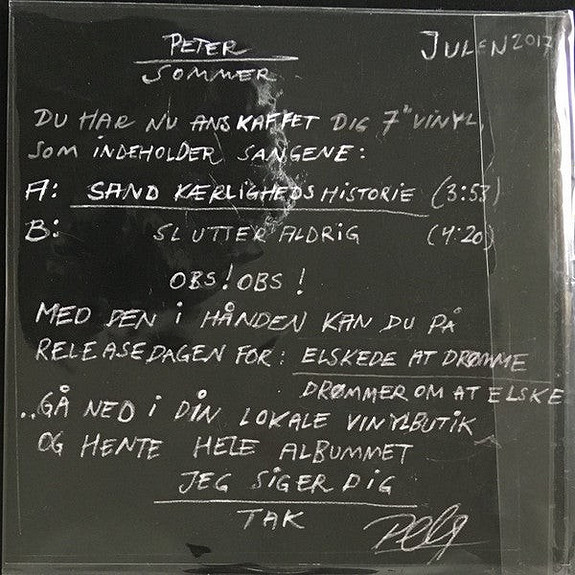 PETER
JULEN 2017
SOMMER
DU HAR NU ANSKAFFET DIG 7" VINYL,
SOM INDEHOLDER SANGENE:
A: SAND KÆRLIGHEDSHISTORIE (3:53)
B: SLUTTER ALDRIG (4:20)
OBS! OBS!
MED DEN I HÅNDEN KAN DU PÅ
RELEASEDAGEN FOR: ELSKEDE AT DRØMME
DRØMMER OM AT ELSKE
..GÅ NED I DIN LOKALE VINYLBUTIK
OG HENTE HELE ALBUMMET
JEG SIGER DIG
TAK